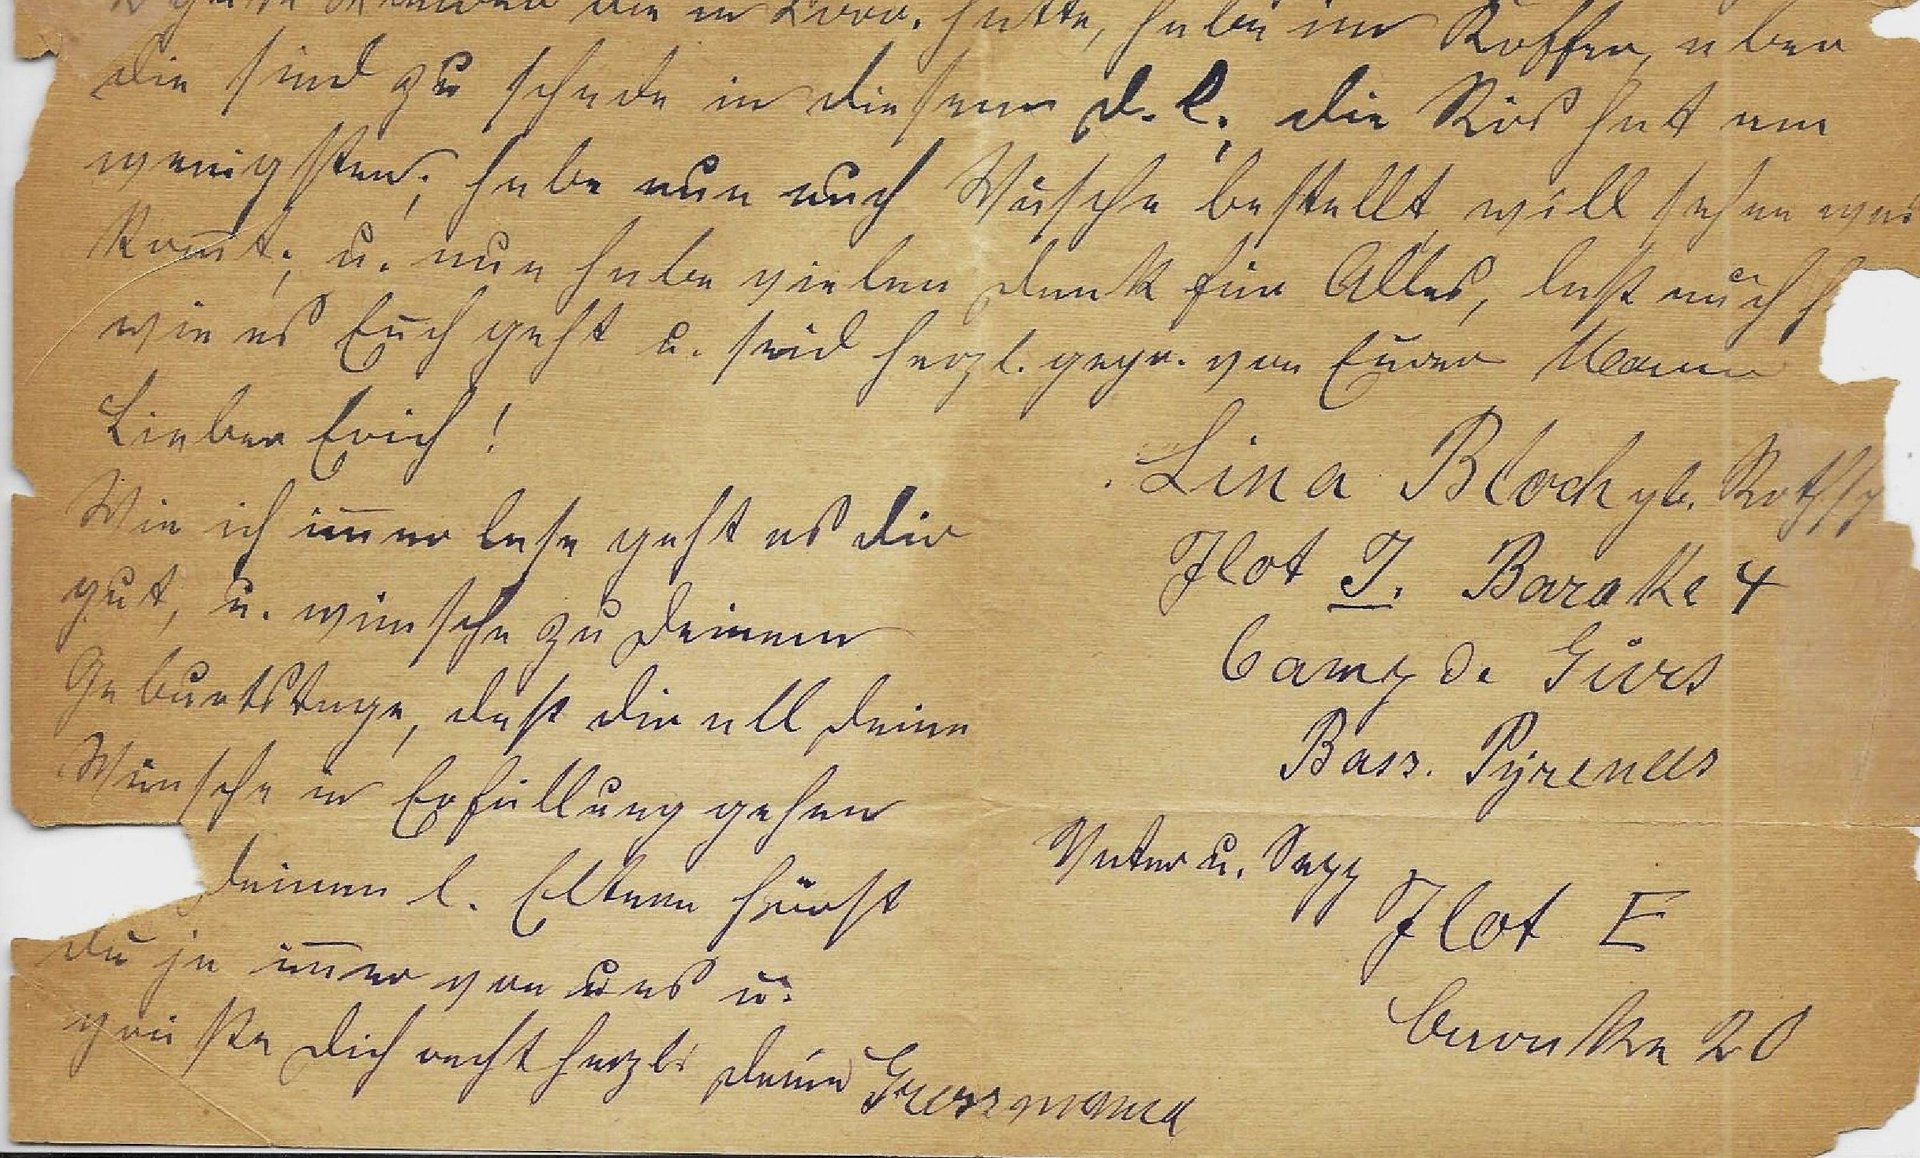 die in hatte, habe im Koffer, aber
die sind zu schade in diesem d. l. die Ros hat am
wenigsten; habe nun auch Wäsche bestellt, will sehen was
komt; u. nun habe vielen Dank für Alles, laßt auch
wie es Euch geht u. seid herzl. gegr. von Eurer Mama
Lieber Erich!
Wie ich im̄er lese geht es dir
gut, u. wünsche zu deinem
Geburtstage, daß dir all deine
Wünsche in Erfüllung gehen
deinen l. Eltern hörst
du ja im̄er von uns u.
grüße dich recht herzl. deine Grossmama
Lina Bloch gb. Roths
Ilot I. Barake 4
Camp de Gurs
Bass. Pyrenees
Vater u. Sepp
Ilot E
Barake 20